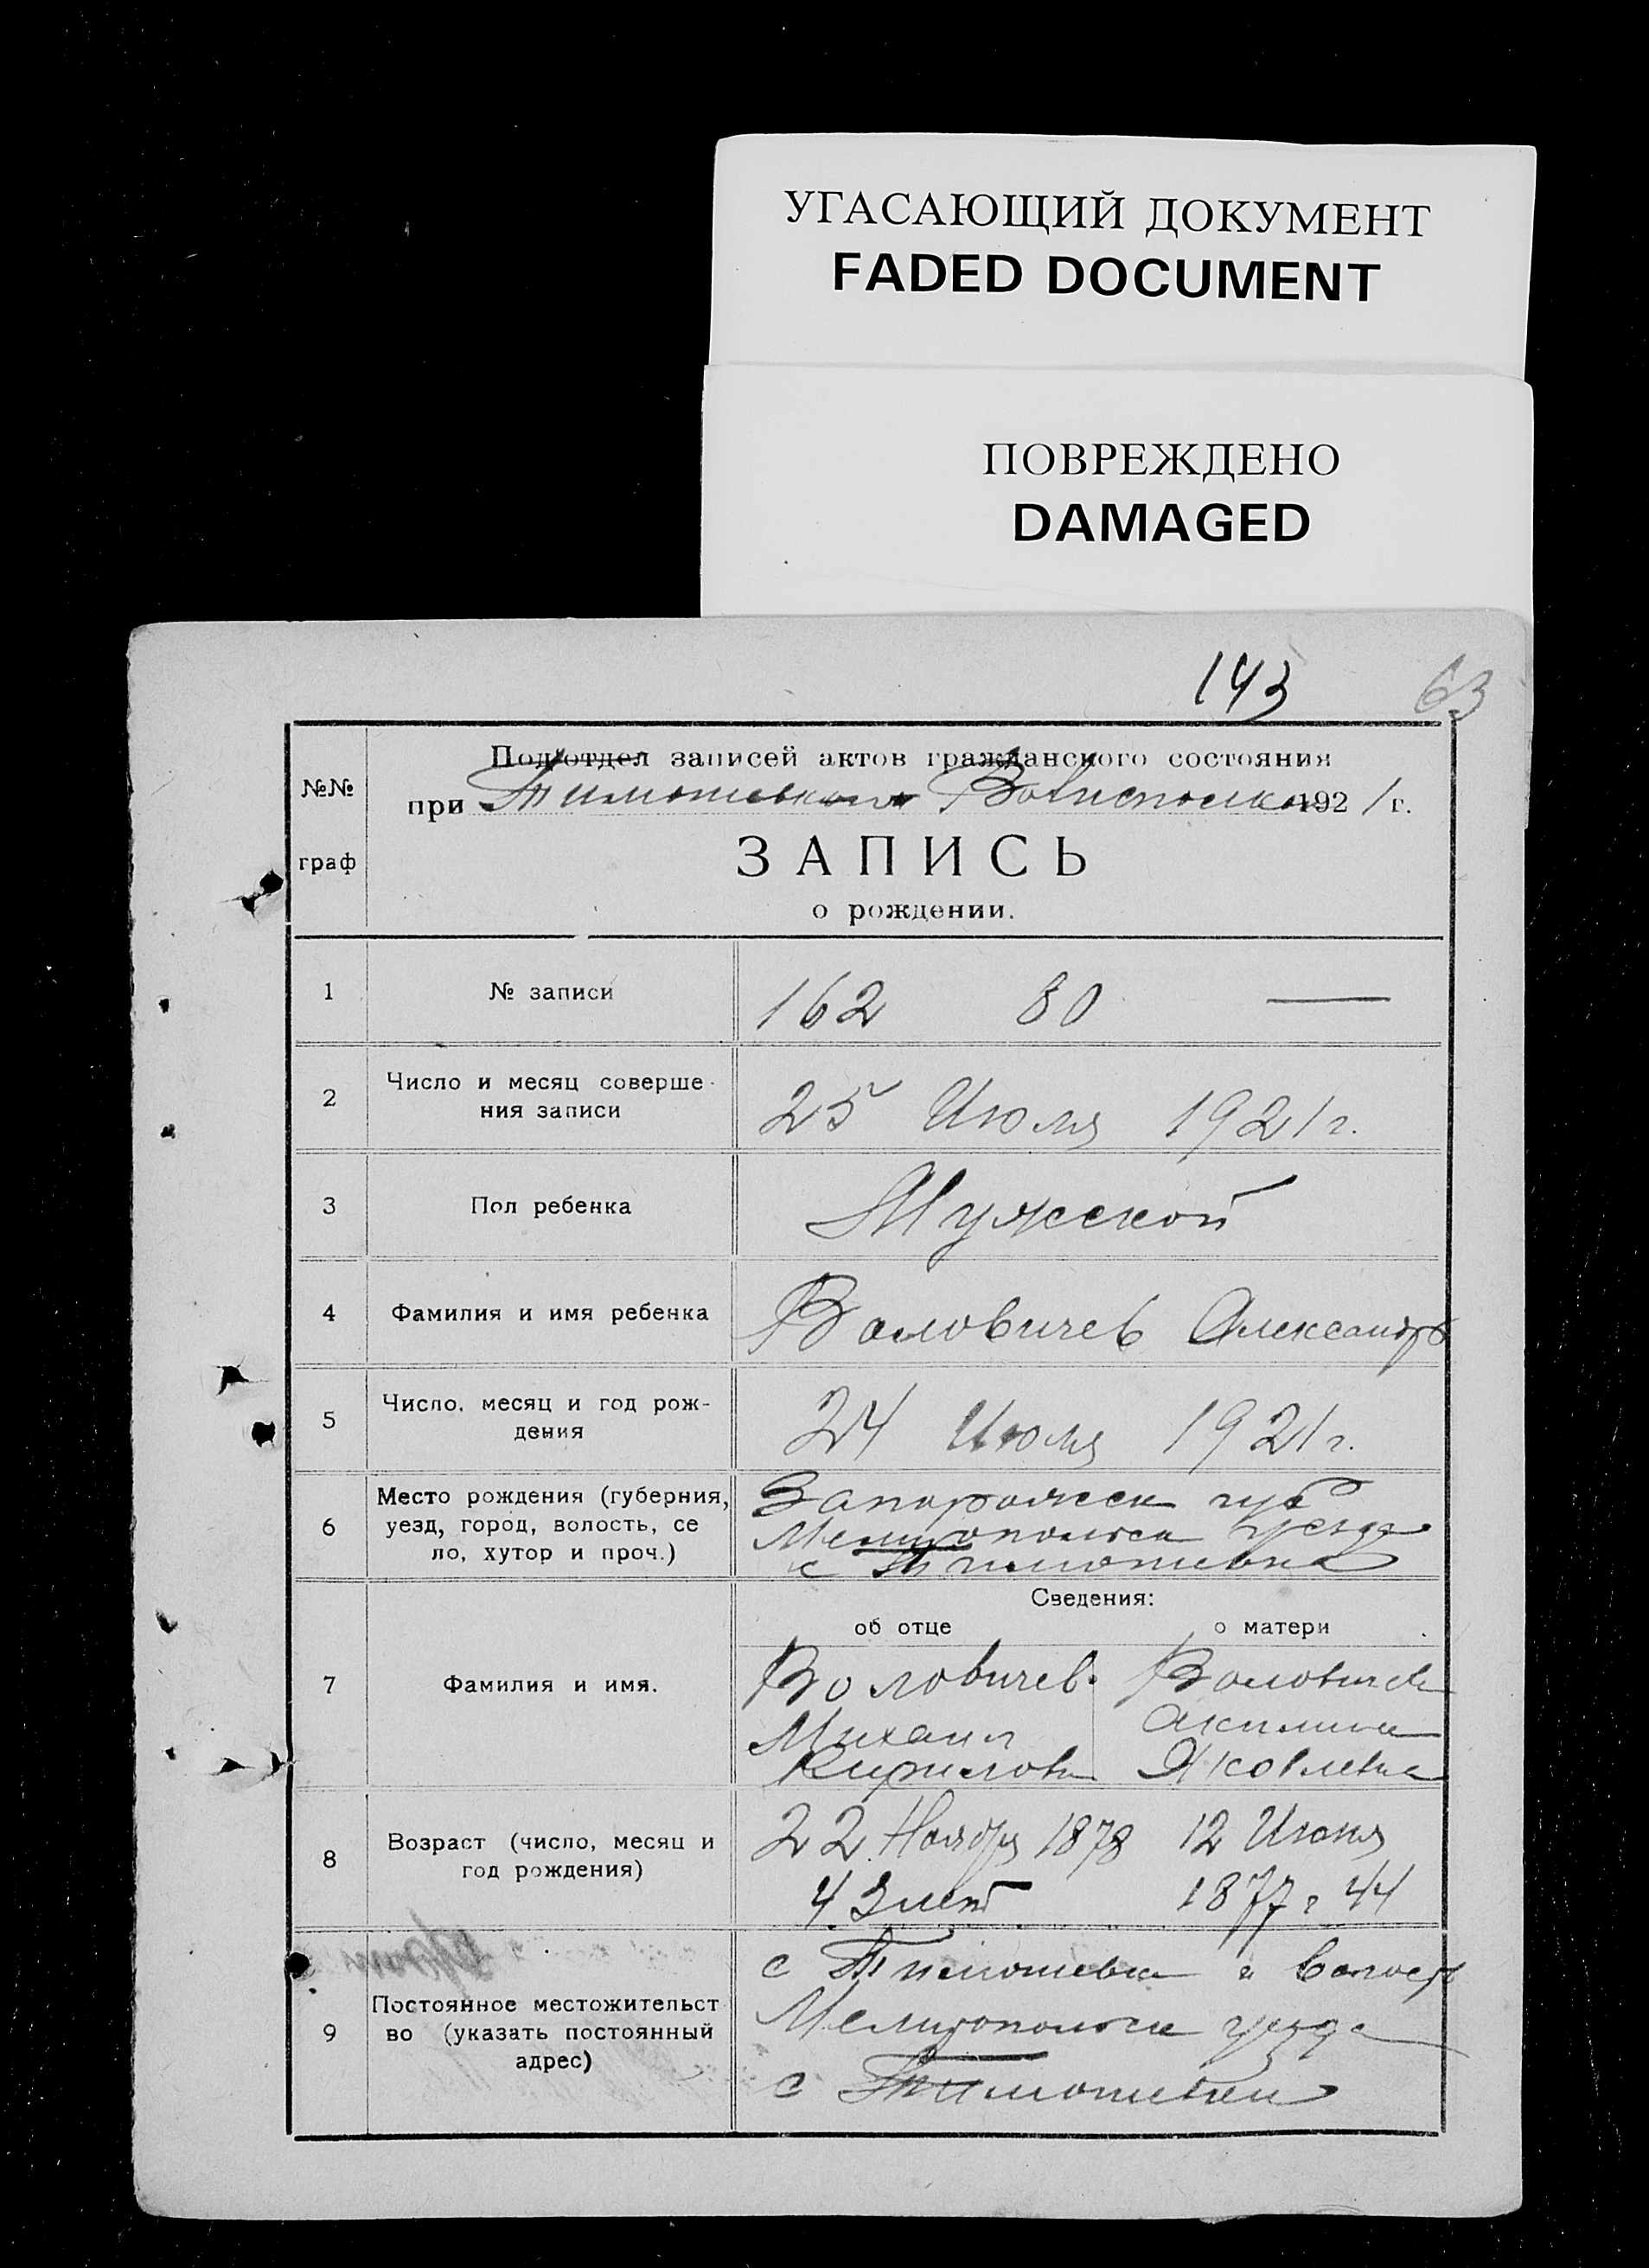 УГАСАЮЩИЙ ДОКУМЕНТ
FADED DOCUMENT
ПОВРЕЖДЕНО
DAMAGED
143 63
№№ граф
Подотдел записей актов гражданского состояния
при Тимошевском Волисполкоме 1921 г.
ЗАПИСЬ
о рождении.
1 № записи 162 80 —
2 Число и месяц соверше-
ния записи 25 Июля 1921 г.
3 Пол ребенка Мужской
4 Фамилия и имя ребенка Воловичев Александр
5 Число, месяц и год рож-
дения 24 Июля 1921 г.
6 Место рождения (губерния,
уезд, город, волость, се
ло, хутор и проч.)
Запорожск губ
Мелитопольск уезда
с Тимошевка
Сведения:
об отце о матери
7 Фамилия и имя.
Воловичев Воловичева
Михаил Акилина
Кирилов Яковлевна
8 Возраст (число, месяц и
год рождения)
22 Ноября 1878 12 Июня
43 лет 1877 г 44
9 Постоянное местожительст
во (указать постоянный
адрес)
с Тимошевка и волость
Мелитопольск уезда
с Тимошевки